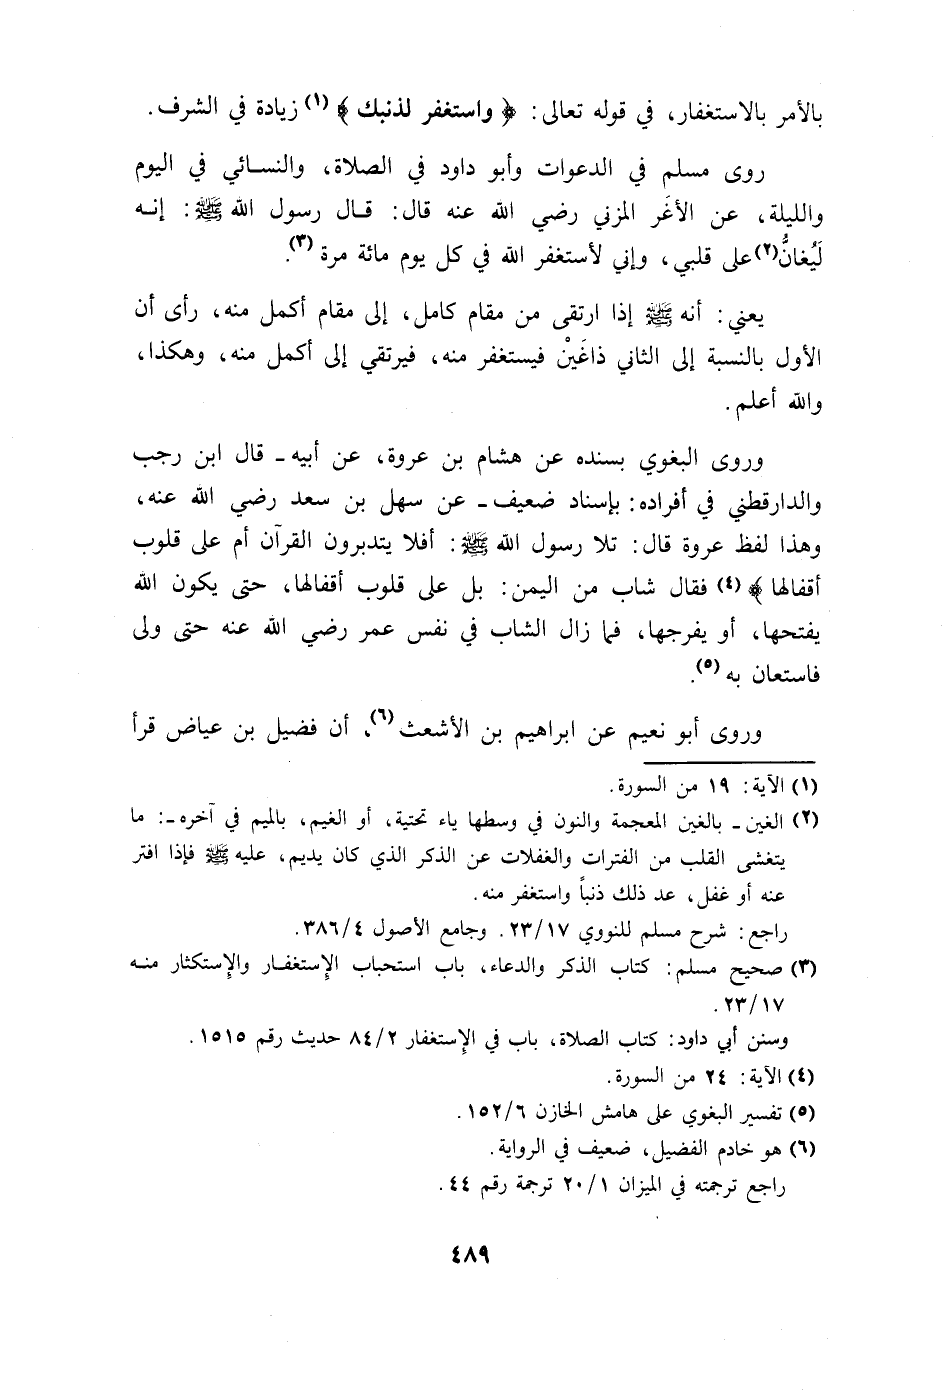 بالأمر بالاستغفار، في قوله تعالى: ﴿ واستغفر لذنبك ﴾ (١) زيادة في الشرف.
روى مسلم في الدعوات وأبو داود في الصلاة، والنسائي في اليوم
والليلة، عن الأغَر المزني رضي الله عنه قال: قال رسول الله ﷺ: إنه
لَيُغانُّ (٢) على قلبي، وإني لأستغفر الله في كل يوم مائة مرة (٣).
يعني: أنه ﷺ إذا ارتقى من مقام كامل، إلى مقام أكمل منه، رأى أن
الأول بالنسبة إلى الثاني ذاغَيْن فيستغفر منه، فيرتقي إلى أكمل منه، وهكذا،
والله أعلم.
وروى البغوي بسنده عن هشام بن عروة، عن أبيه ـ قال ابن رجب
والدارقطني في أفراده: بإسناد ضعيف ـ عن سهل بن سعد رضي الله عنه،
وهذا لفظ عروة قال: تلا رسول الله ﷺ: أفلا يتدبرون القرآن أم على قلوب
أقفالها ﴾ (٤) فقال شاب من اليمن: بل على قلوب أقفالها، حتى يكون الله
يفتحها، أو يفرجها، فما زال الشاب في نفس عمر رضي الله عنه حتى ولى
فاستعان به (٥).
وروى أبو نعيم عن ابراهيم بن الأشعث (٦)، أن فضيل بن عياض قرأ
(١) الآية: ١٩ من السورة.
(٢) الغين ـ بالغين المعجمة والنون في وسطها ياء تحتية، أو الغيم، بالميم في آخره ـ: ما
يتغشى القلب من الفترات والغفلات عن الذكر الذي كان يديم، عليه ﷺ فإذا افتر
عنه أو غفل، عد ذلك ذنباً واستغفر منه.
راجع: شرح مسلم للنووي ٢٣/١٧. وجامع الأصول ٣٨٦/٤.
(٣) صحيح مسلم: كتاب الذكر والدعاء، باب استحباب الإستغفار والإستكثار منه
٢٣/١٧.
وسنن أبي داود: كتاب الصلاة، باب في الإستغفار ٨٤/٢ حديث رقم ١٥١٥.
(٤) الآية: ٢٤ من السورة.
(٥) تفسير البغوي على هامش الخازن ١٥٢/٦.
(٦) هو خادم الفضيل، ضعيف في الرواية.
راجع ترجمته في الميزان ٢٠/١ ترجمة رقم ٤٤.
٤٨٩